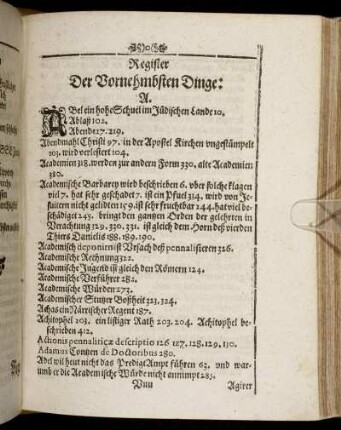 Register
Der Vornehmbsten Dinge:
A.
ABel ein hohe Schuel im Jüdischen Lande 10.
Ablaß 102.
Abende 17. 219.
Abendmahl Christi 97. in der Apostel Kirchen ungestümpelt
103. wird verlestert 104.
Academien 318. werden zur andern Form 330. alte Academien
380.
Academische Barbarey wird beschrieben 6. uber solche klagen
viel 7. hat sehr geschadet 7. ist ein Pfuel 314. wird von Je-
suitern nicht gelidten 159. ist sehr fruchtbar 244. hat viel be-
schädiget 245. bringt den gantzen Orden der gelehrten in
Verachtung 329. 330. 331. ist gleich dem Horn deß vierden
Thiers Danielis 188. 189. 190.
Academisch deponirn ist Ursach deß pennalisieren 326.
Academische Rechnung 322.
Academische Jugend ist gleich den Römern 124.
Academische Verführer 282.
Academische Würden 273.
Academischer Stutzer Boßheit 323. 324.
Achas ein Närrischer Regent 187.
Achitophel 203. ein listiger Rath 203. 204. Achitophel be-
schrieben 412.
Actionis pennaliticæ descriptio 126. 127. 128. 129. 130.
Adamus Contzen de Doctoribus 280.
Adel wil heut nicht das Predigt Ampt führen 63. und war-
umb er die Academische Würde nicht annimpt 285.
Vuu Agirer